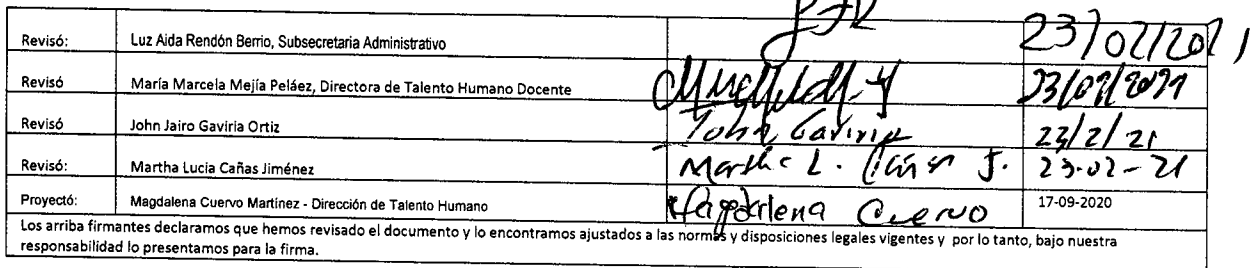 Revisó: Luz Aida Rendón Berrio, Subsecretaria Administrativo 23/02/2021
Revisó María Marcela Mejía Peláez, Directora de Talento Humano Docente 23/02/2021
Revisó John Jairo Gaviria Ortiz John Gaviria 23/2/21
Revisó: Martha Lucia Cañas Jiménez Martha L. Cañas J. 23-02-21
Proyectó: Magdalena Cuervo Martínez - Dirección de Talento Humano Magdalena Cuervo 17-09-2020
Los arriba firmantes declaramos que hemos revisado el documento y lo encontramos ajustados a las normas y disposiciones legales vigentes y por lo tanto, bajo nuestra
responsabilidad lo presentamos para la firma.